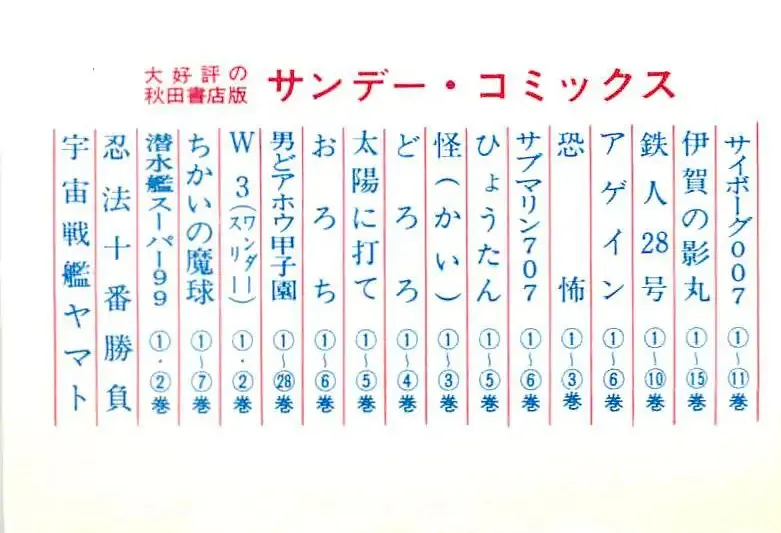 大好評の
秋田書店版
サンデー・コミックス
サイボーグ007 ①〜⑪巻
伊賀の影丸 ①〜⑮巻
鉄人28号 ①〜⑩巻
アゲイン ①〜⑥巻
恐怖 ①〜③巻
サブマリン707 ①〜⑥巻
ひょうたん ①〜⑤巻
怪(かい) ①〜③巻
どろろ ①〜④巻
太陽に打て ①〜⑤巻
おろち ①〜⑥巻
男どアホウ甲子園 ①〜㉘巻
W3(ワンダースリー) ①・②巻
ちかいの魔球 ①〜⑦巻
潜水艦スーパー99 ①・②巻
忍法十番勝負
宇宙戦艦ヤマト